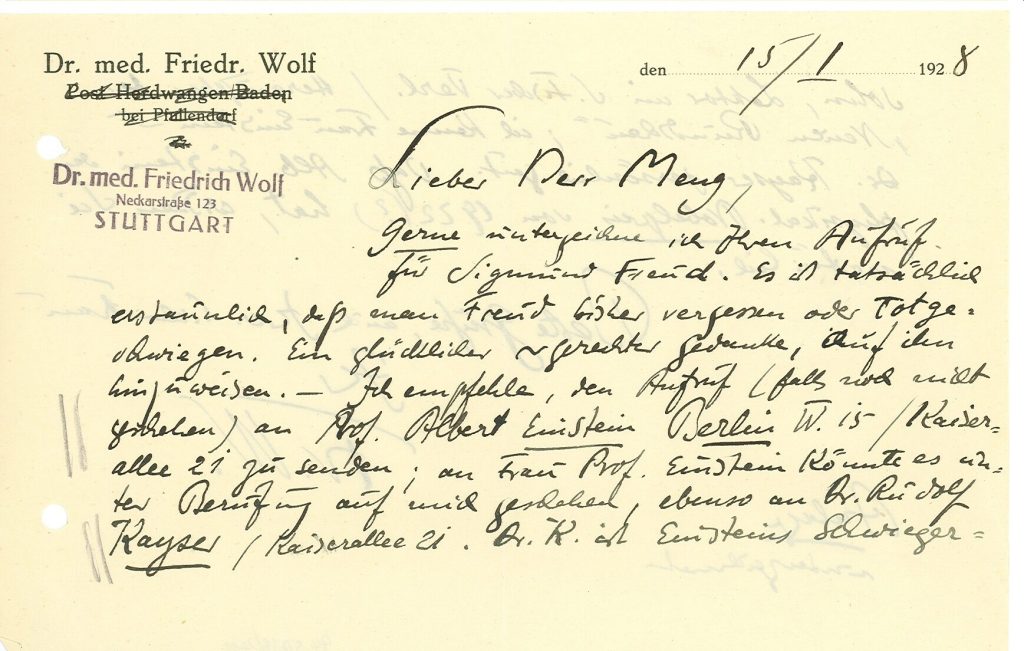 Dr. med. Friedr. Wolf
Post Herdwangen/Baden
bei Pfullendorf
den 15/1 1928
Dr. med. Friedrich Wolf
Neckarstraße 123
STUTTGART
Lieber Herr Meng,
Gerne unterzeichne ich Ihren Aufruf
für Sigmund Freud. Es ist tatsächlich
erstaunlich, daß man Freud bisher vergessen oder totge-
schwiegen. Ein glücklicher gerechter Gedanke, auf ihn
hinzuweisen. – Ich empfehle, den Aufruf (falls noch nicht
geschehen) an Prof. Albert Einstein Berlin W. 15 / Kaiser-
allee 21 zu senden; an Frau Prof. Einstein könnte es un-
ter Berufung auf mich geschehen, ebenso an Dr. Rudolf
Kayser / Kaiserallee 21. Dr. K. ist Einsteins Schwieger-